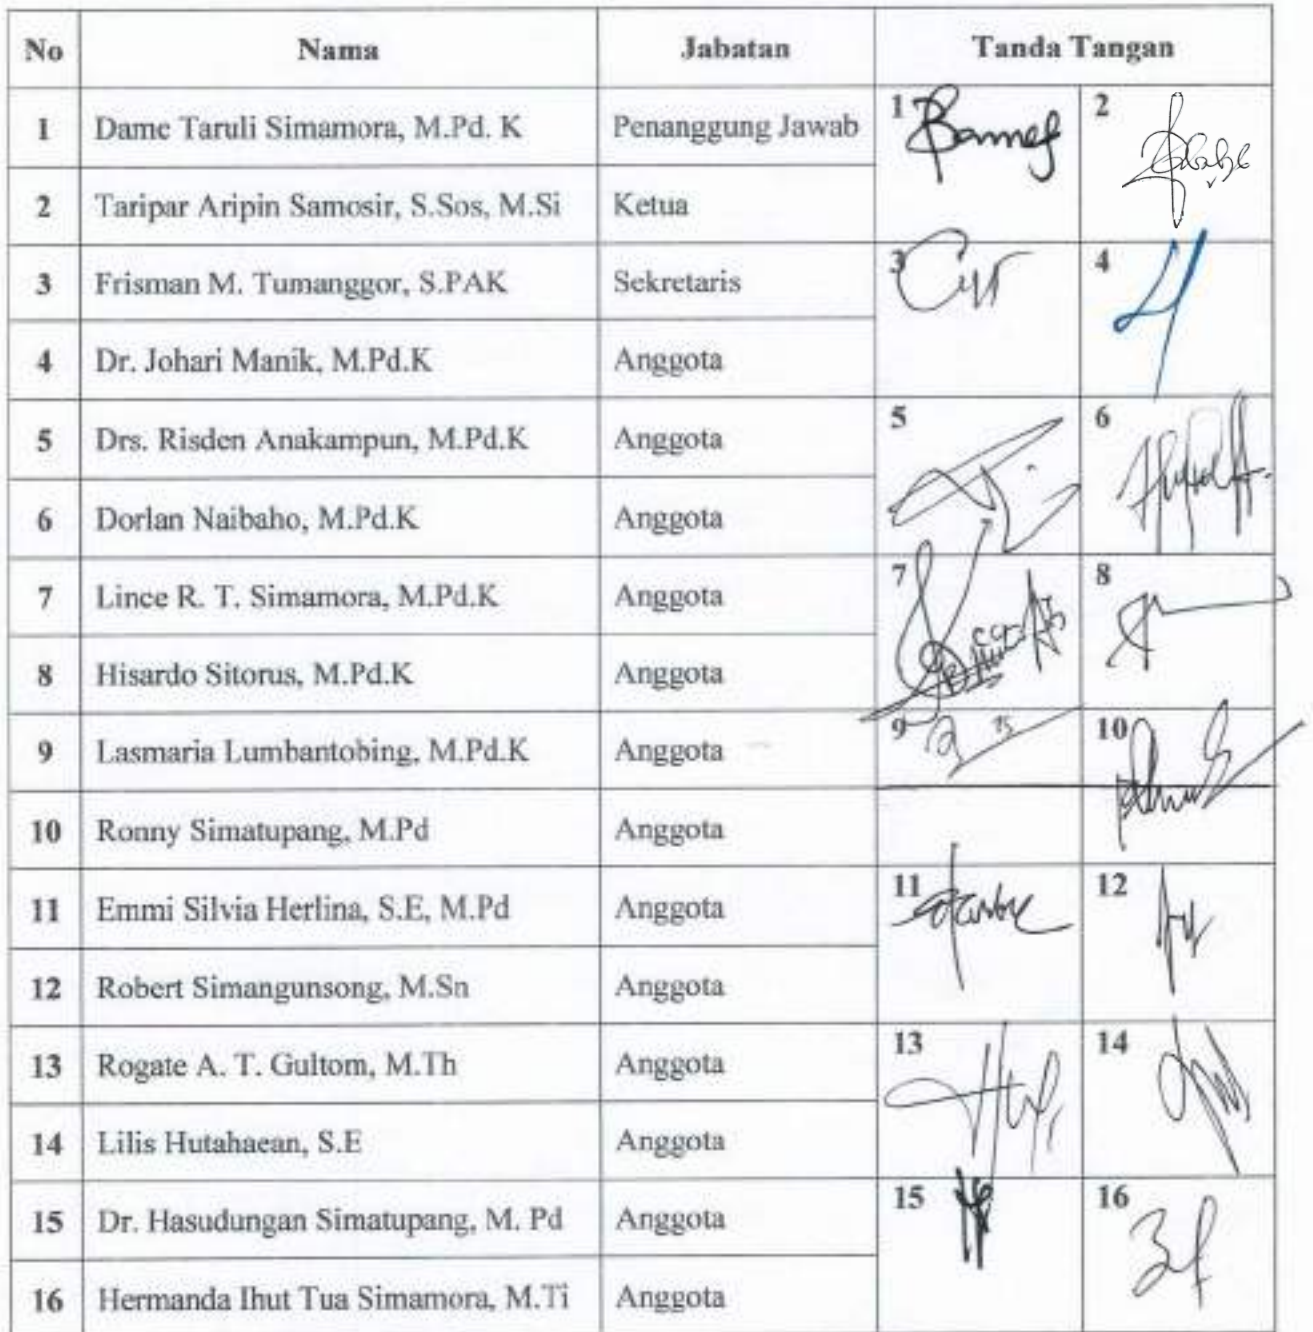 No Nama Jabatan Tanda Tangan
1 Dame Taruli Simamora, M.Pd. K Penanggung Jawab 1 2
2 Taripar Aripin Samosir, S.Sos, M.Si Ketua
3 Frisman M. Tumanggor, S.PAK Sekretaris 3 4
4 Dr. Johari Manik, M.Pd.K Anggota
5 Drs. Risden Anakampun, M.Pd.K Anggota 5 6
6 Dorlan Naibaho, M.Pd.K Anggota
7 Lince R. T. Simamora, M.Pd.K Anggota 7 8
8 Hisardo Sitorus, M.Pd.K Anggota
9 Lasmaria Lumbantobing, M.Pd.K Anggota 9 10
10 Ronny Simatupang, M.Pd Anggota
11 Emmi Silvia Herlina, S.E, M.Pd Anggota 11 12
12 Robert Simangunsong, M.Sn Anggota
13 Rogate A. T. Gultom, M.Th Anggota 13 14
14 Lilis Hutahaean, S.E Anggota
15 Dr. Hasudungan Simatupang, M. Pd Anggota 15 16
16 Hermanda Ihut Tua Simamora, M.Ti Anggota